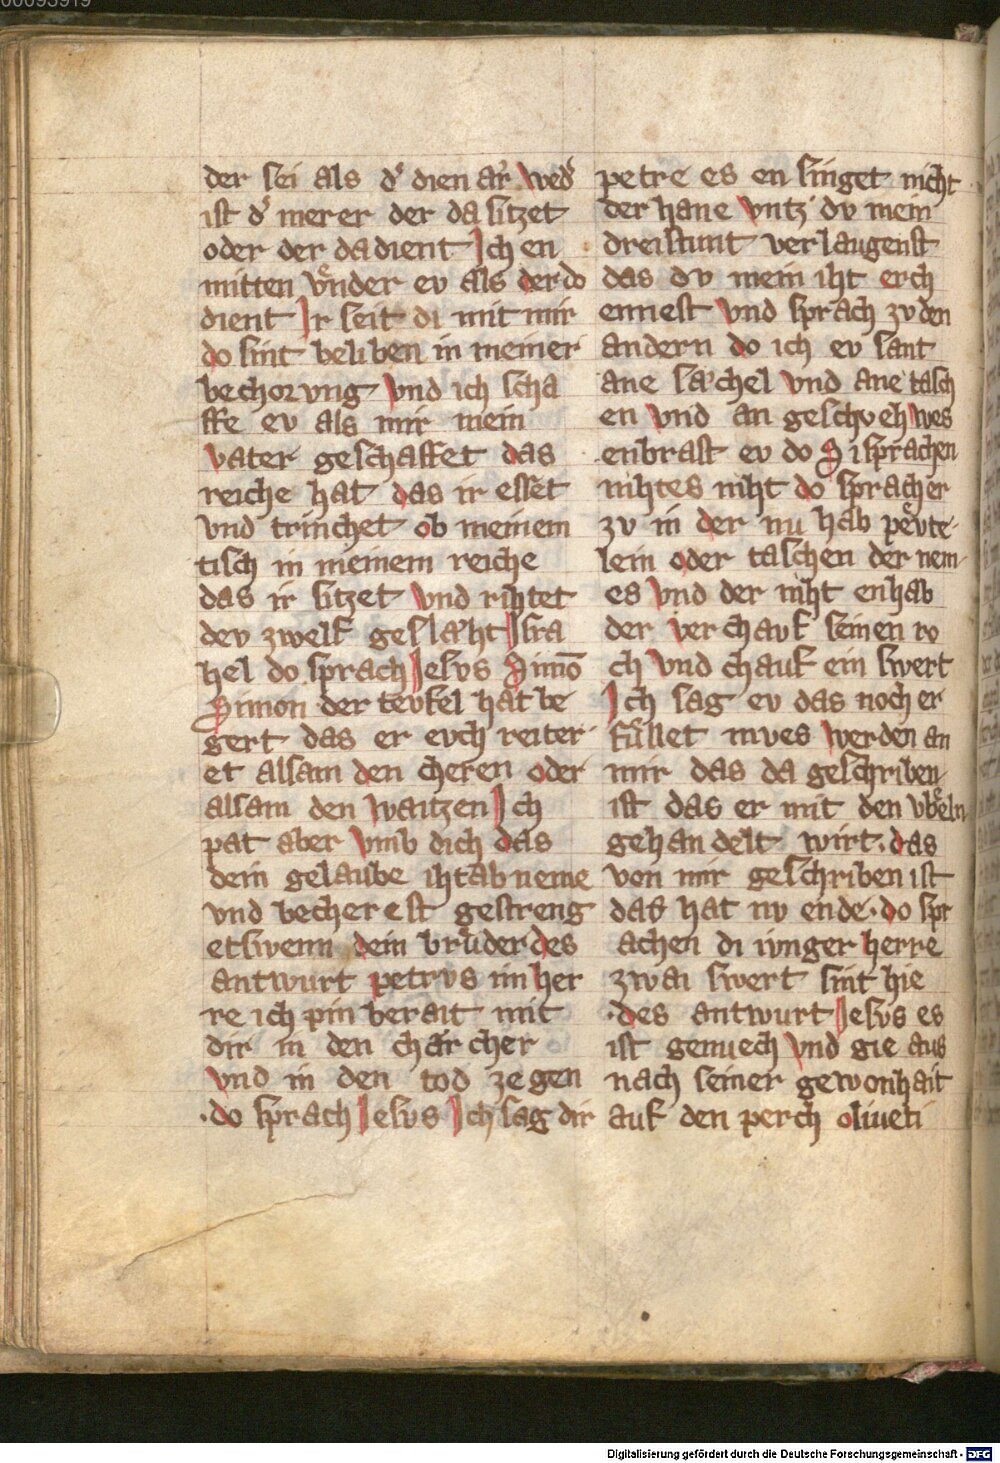 00095919
der sei als d' dien ar' wed'
ist d' merer der da sitzet
oder der da dient Ich en
mitten vͦnder ev als der do
dient Ir seit di mit mir
do sint beliben in meiner
bechorvng vnd ich scha
ffe ev als mir mein
vater geschaffet das
reiche hat das ir esset
vnd trinchet ob meinem
tisch in meinem reiche
das ir sitzet vnd rihtet
dev zwelf geslæ'ht Isra
hel do sprach Jesvs Simō
Simon der tevfel hat be
gert das er evch reiter
et alsam den cheren oder
alsam den waitzen Ich
pat aber vmb dich das
dein gelaube iht ab neme
vnd becherest gestreng
etswenn dein brůder des
antwurt petrvs im her
re ich pin berait mit
dir in den charcher
vnd in den tod ze gen
·do sprach Jesvs Ich sag dir
petre es en singet nicht
der hane vntz dv mein
dreistunt verlaugenst
das dv mein iht erch
ennest vnd sprach zv den
andern do ich ev sant
ane sa'chel vnd ane tasch
en vnd an geschveh wes
enbrast ev do Si sprachen
nihtes niht do sprach er
zv in der nu hab pevte-
lein oder taschen der nem-
es vnd der niht enhab
der verchauf seinen ro
ch vnd chauf ein swert
Ich sag ev das noch er
fůllet mves werden an
mir das da geschriben
ist das er mit den vbeln
gehandelt wirt. das
von mir geschriben ist
das hat nv ende. do spr
achen di ivnger herre
zwai swert sint hie
·des antwurt Jesvs es
ist genuech vnd gie aus
nach seiner gewonhait
auf den perch oliueti
Digitalisierung gefördert durch die Deutsche Forschungsgemeinschaft - DFG